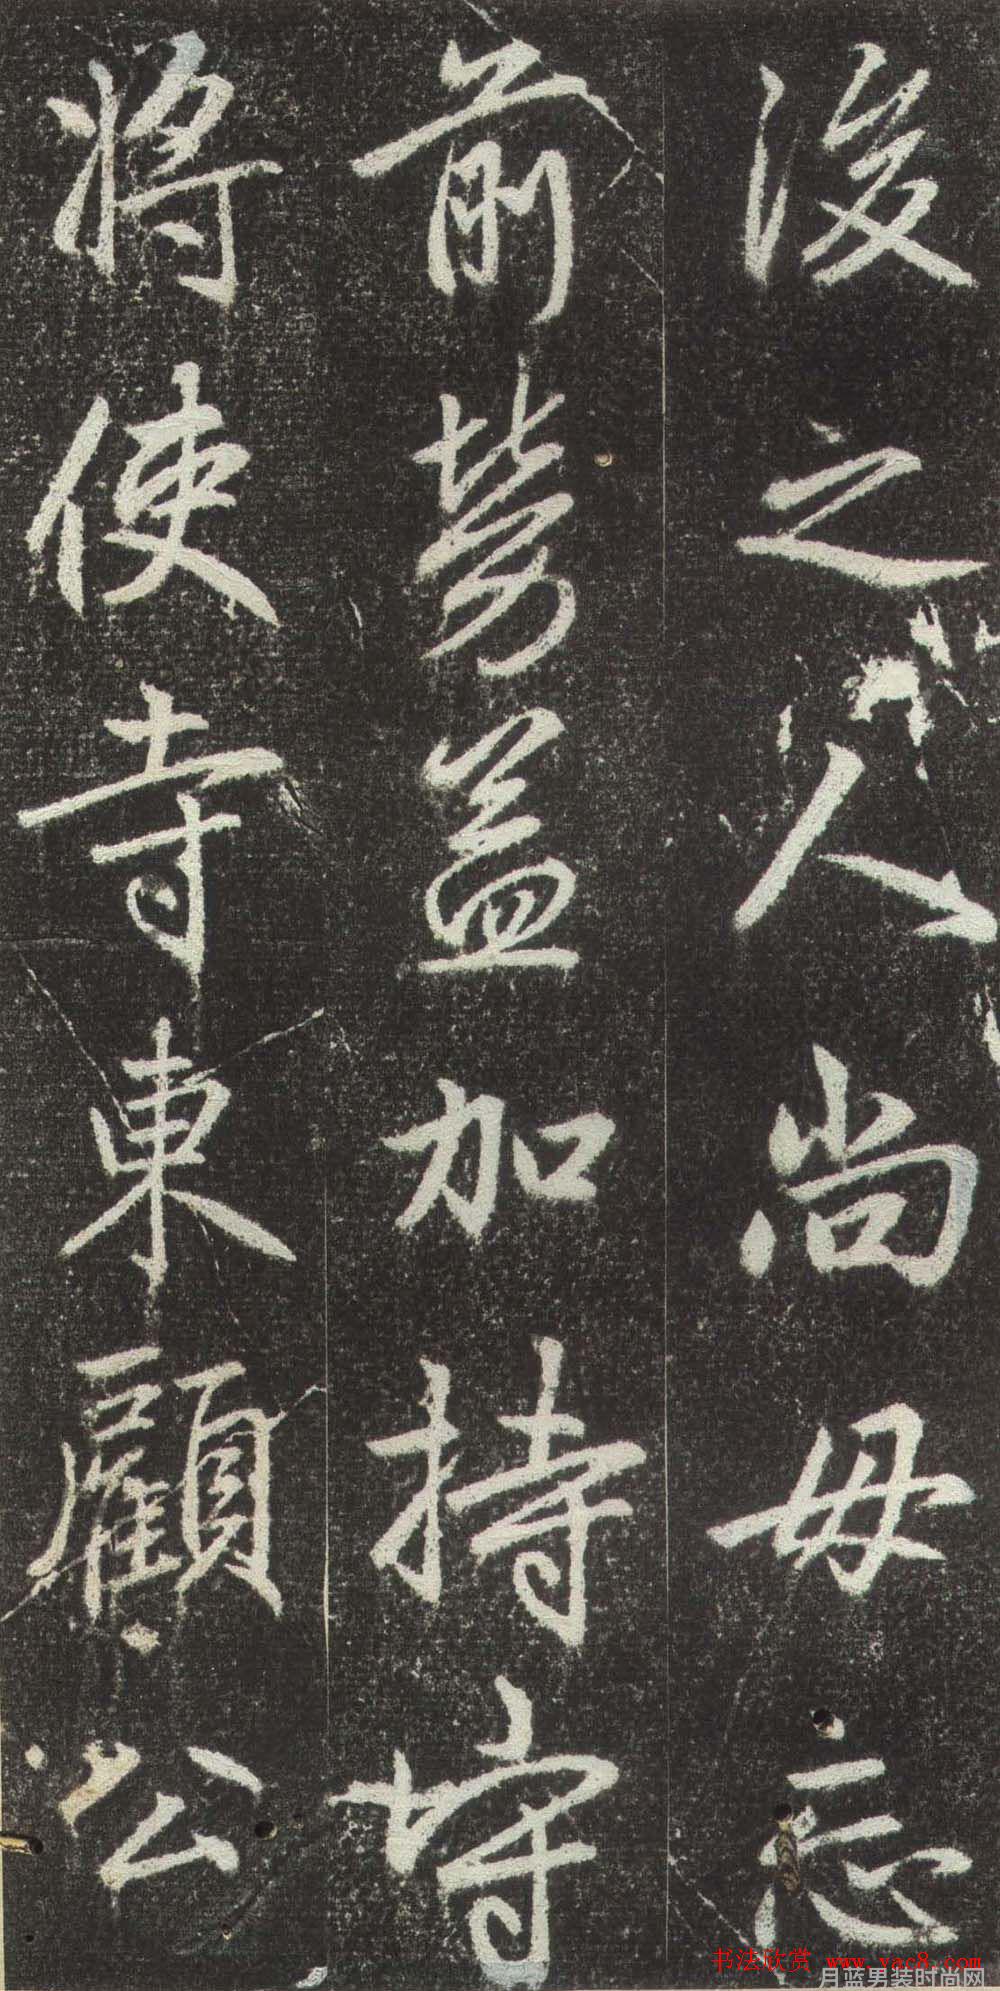 後之人尚毋忘
前勞益加持守
將使寺東顧公
書法欣赏 www.yac8.com
月蓝男装时尚网